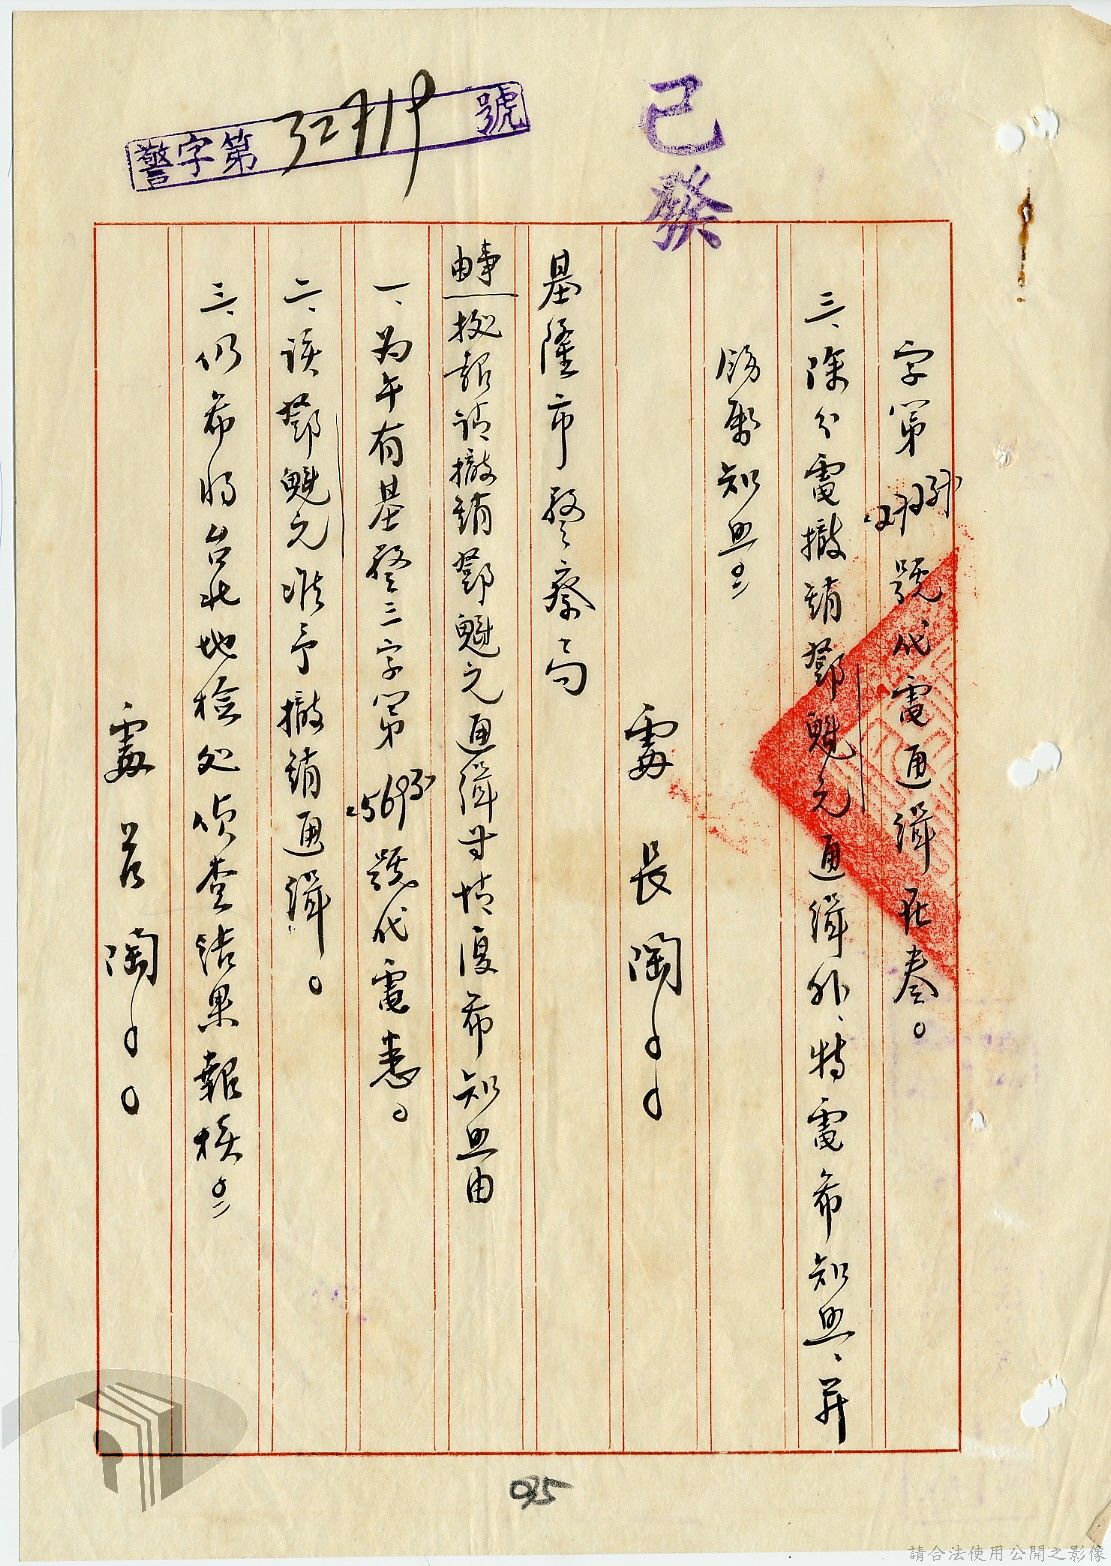 警字第32719號
已發
字第 號代電通緝在奏。
三、除分電撤銷鄧魁元通緝外、特電希知照、并
飭屬知照
處長陶
基隆市警察局
事由 據報請撤銷鄧魁元通緝等情復希知照由
一、为午有基警三字第2569号號代電悉。
二、該鄧魁元准予撤銷通緝。
三、仍希將台北地檢处偵查結果報核
處長陶
035
請合法使用公開之影像